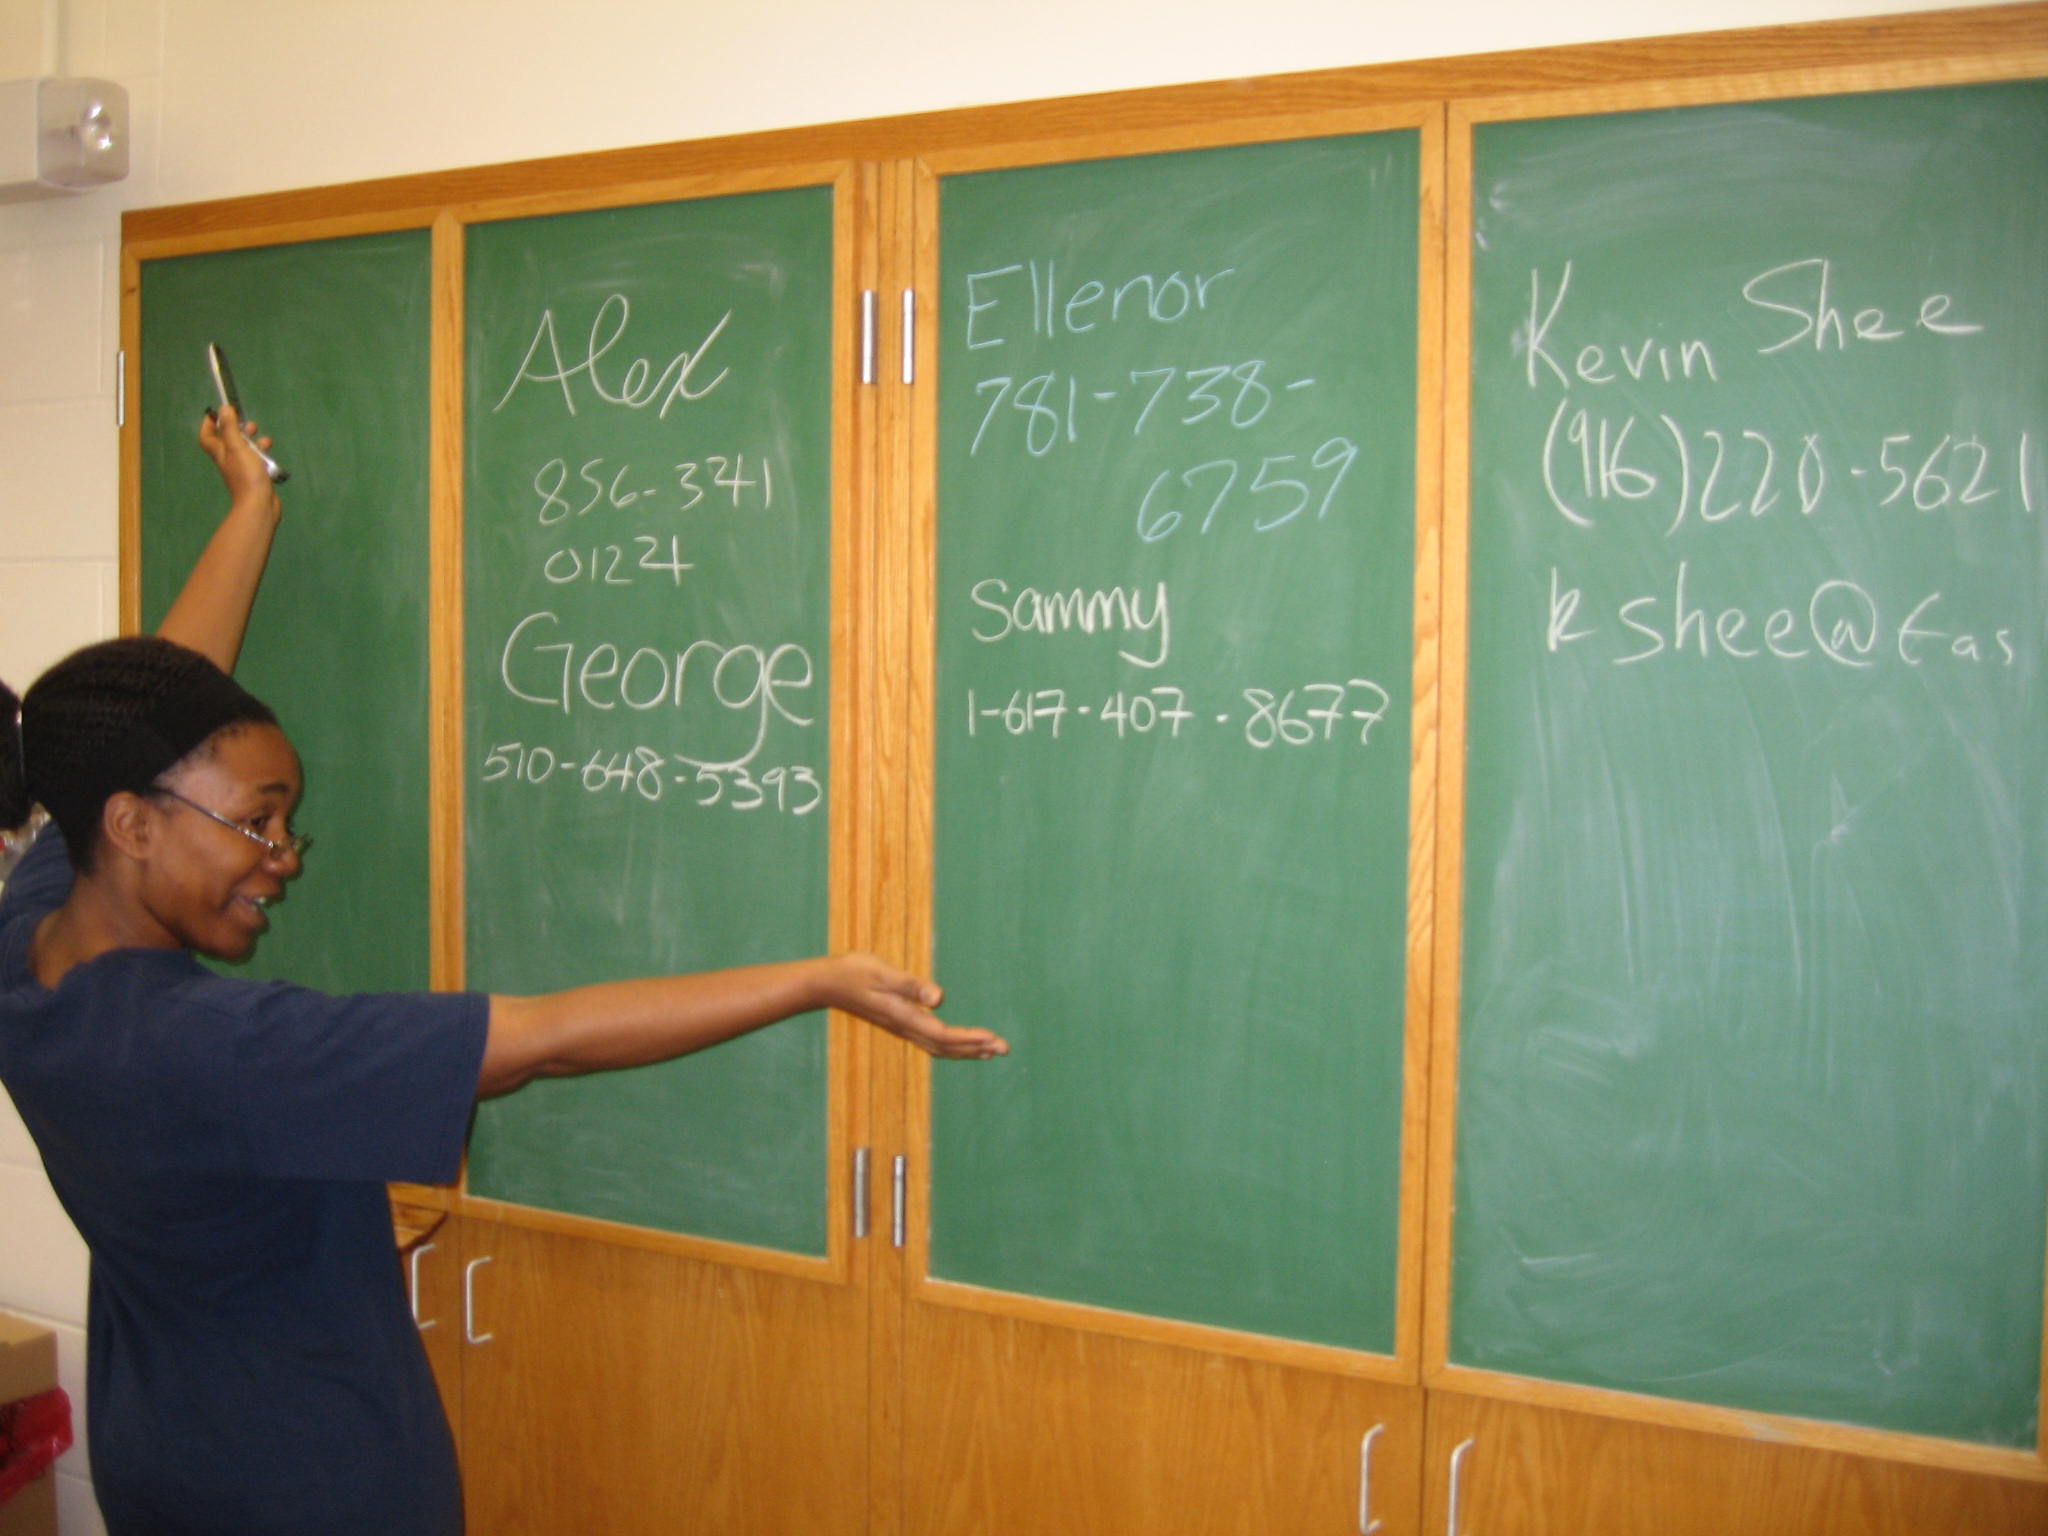 Alex
856-3241
01224
George
510-648-5393
Ellenor
781-738-
6759
Sammy
1-617-407-8677
Kevin Shee
(916)220-5621
kshee@fas